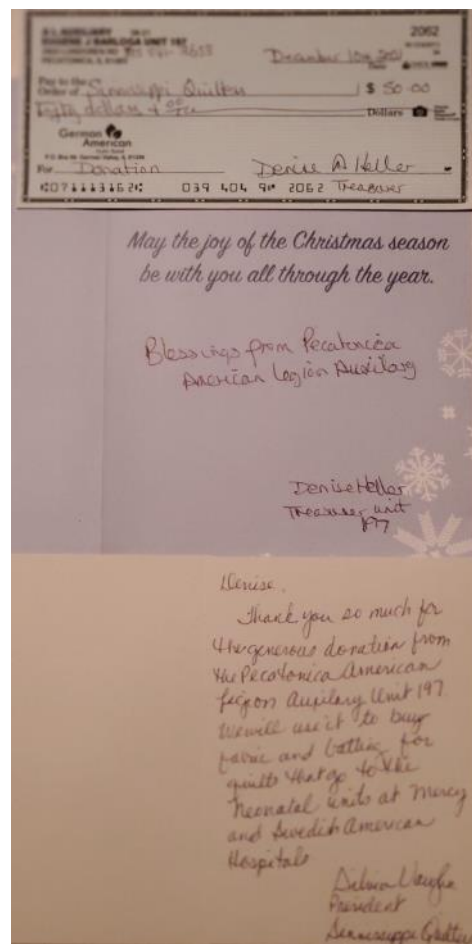 A L AUXILIARY
EUGENE J BARLOGA UNIT 197
2062
PECATONICA, IL
December 10th 2021
Date
Pay to the
Order of Sinnissippi Quilters $ 50.00
Fifty dollars & 00/100 Dollars
German
American
For Donation Denise A Heller
039 404 9 2062 Treasurer
May the joy of the Christmas season
be with you all through the year.
Blessings from Pecatonica
American Legion Auxilary
Denise Heller
Treasurer unit
197
Denise,
Thank you so much for
the generous donation from
the Pecatonica American
Legion Auxilary Unit 197
We will use it to buy
fabric and batting for
quilts that go to the
Neonatal units at Mercy
and Swedish American
Hospitals
Vaughn
President
Sinnissippi Quilters